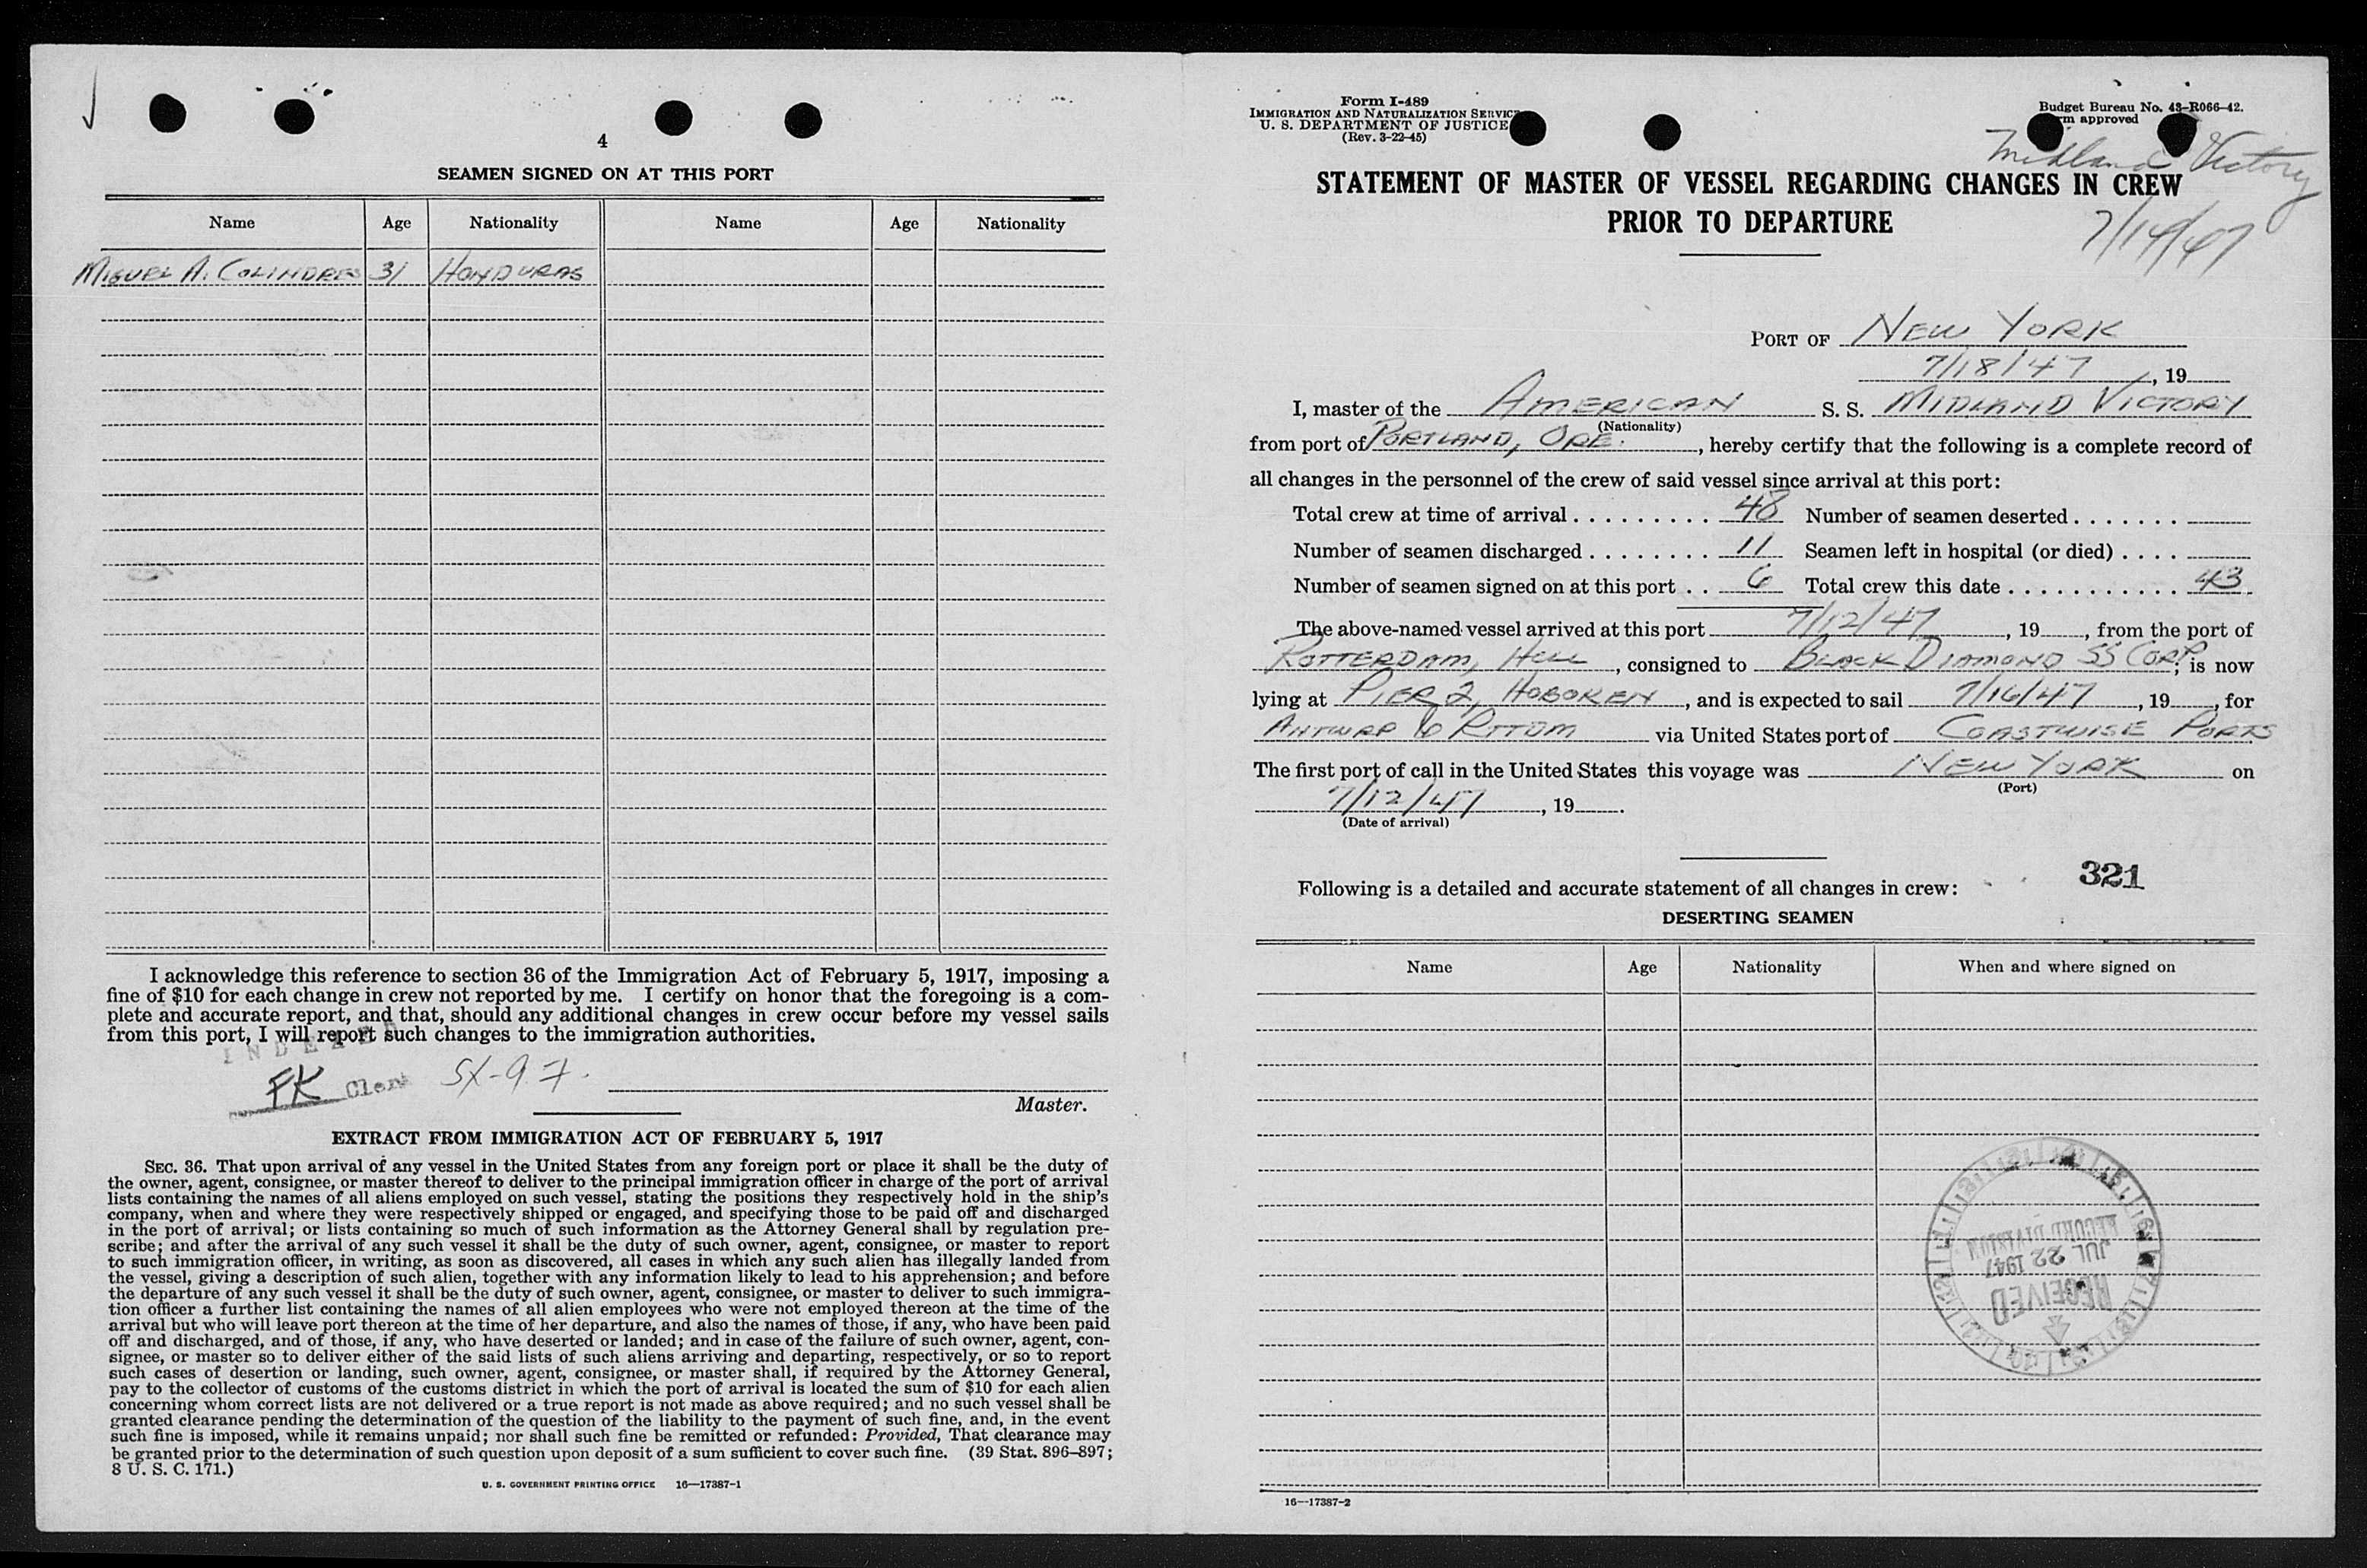 4
SEAMEN SIGNED ON AT THIS PORT
Name Age Nationality Name Age Nationality
MIGUEL A. COLINDRES 31 HONDURAS
I acknowledge this reference to section 36 of the Immigration Act of February 5, 1917, imposing a
fine of $10 for each change in crew not reported by me. I certify on honor that the foregoing is a com-
plete and accurate report, and that, should any additional changes in crew occur before my vessel sails
from this port, I will report such changes to the immigration authorities.
FK Clerk SX-97.
Master.
EXTRACT FROM IMMIGRATION ACT OF FEBRUARY 5, 1917
SEC. 36. That upon arrival of any vessel in the United States from any foreign port or place it shall be the duty of
the owner, agent, consignee, or master thereof to deliver to the principal immigration officer in charge of the port of arrival
lists containing the names of all aliens employed on such vessel, stating the positions they respectively hold in the ship's
company, when and where they were respectively shipped or engaged, and specifying those to be paid off and discharged
in the port of arrival; or lists containing so much of such information as the Attorney General shall by regulation pre-
scribe; and after the arrival of any such vessel it shall be the duty of such owner, agent, consignee, or master to report
to such immigration officer, in writing, as soon as discovered, all cases in which any such alien has illegally landed from
the vessel, giving a description of such alien, together with any information likely to lead to his apprehension; and before
the departure of any such vessel it shall be the duty of such owner, agent, consignee, or master to deliver to such immigra-
tion officer a further list containing the names of all alien employees who were not employed thereon at the time of the
arrival but who will leave port thereon at the time of her departure, and also the names of those, if any, who have been paid
off and discharged, and of those, if any, who have deserted or landed; and in case of the failure of such owner, agent, con-
signee, or master so to deliver either of the said lists of such aliens arriving and departing, respectively, or so to report
such cases of desertion or landing, such owner, agent, consignee, or master shall, if required by the Attorney General,
pay to the collector of customs of the customs district in which the port of arrival is located the sum of $10 for each alien
concerning whom correct lists are not delivered or a true report is not made as above required; and no such vessel shall be
granted clearance pending the determination of the question of the liability to the payment of such fine, and, in the event
such fine is imposed, while it remains unpaid; nor shall such fine be remitted or refunded: Provided, That clearance may
be granted prior to the determination of such question upon deposit of a sum sufficient to cover such fine. (39 Stat. 896-897;
8 U. S. C. 171.)
U. S. GOVERNMENT PRINTING OFFICE 16—17387-1
Form I-489
IMMIGRATION AND NATURALIZATION SERVICE
U. S. DEPARTMENT OF JUSTICE
(Rev. 3-22-45)
Budget Bureau No. 43-R066-42.
approved
Midland Victory
7/14/47
STATEMENT OF MASTER OF VESSEL REGARDING CHANGES IN CREW
PRIOR TO DEPARTURE
PORT OF NEW YORK
7/18/47, 19
I, master of the AMERICAN S. S. MIDLAND VICTORY
(Nationality)
from port of PORTLAND, ORE., hereby certify that the following is a complete record of
all changes in the personnel of the crew of said vessel since arrival at this port:
Total crew at time of arrival 48 Number of seamen deserted
Number of seamen discharged 11 Seamen left in hospital (or died)
Number of seamen signed on at this port 6 Total crew this date 43
The above-named vessel arrived at this port 7/12/47, 19, from the port of
ROTTERDAM, , consigned to BLACK DIAMOND SS CORP; is now
lying at PIER 2, HOBOKEN, and is expected to sail 7/16/47, 19, for
ANTWRP & RTTDM via United States port of COASTWISE PORTS
The first port of call in the United States this voyage was NEW YORK on
(Port)
7/12/47, 19.
(Date of arrival)
321
Following is a detailed and accurate statement of all changes in crew:
DESERTING SEAMEN
Name Age Nationality When and where signed on
RECEIVED
JUL 22 1947
RECORD DIVISION
16—17387-2